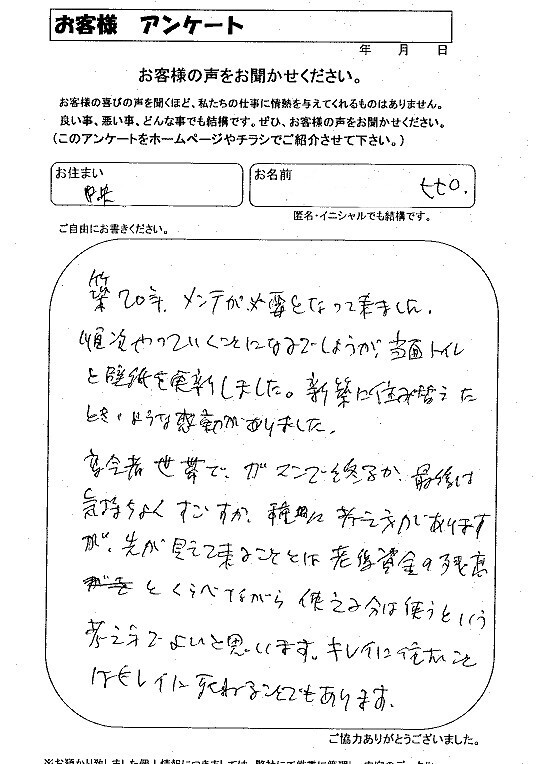 お客様 アンケート
年 月 日
お客様の声をお聞かせください。
お客様の喜びの声を聞くほど、私たちの仕事に情熱を与えてくれるものはありません。
良い事、悪い事、どんな事でも結構です。ぜひ、お客様の声をお聞かせください。
(このアンケートをホームページやチラシでご紹介させて下さい。)
お住まい
中央
お名前
匿名・イニシャルでも結構です。
ご自由にお書きください。
築20年、メンテが必要となって来ました。
順次やっていくことになるでしょうが、当面トイレ
と壁紙を更新しました。新築に住み替えた
ときのような感動がありました。
高令者世帯で、ガマンで終るか、最後は
気持ちよくすごすか、種々に考え方があります
が、先が見えて来ることとは老後資金の残高
とくらべながら使える分は使うという
考え方でよいと思います。キレイに住むこと
はキレイに死ねることでもあります。
ご協力ありがとうございました。